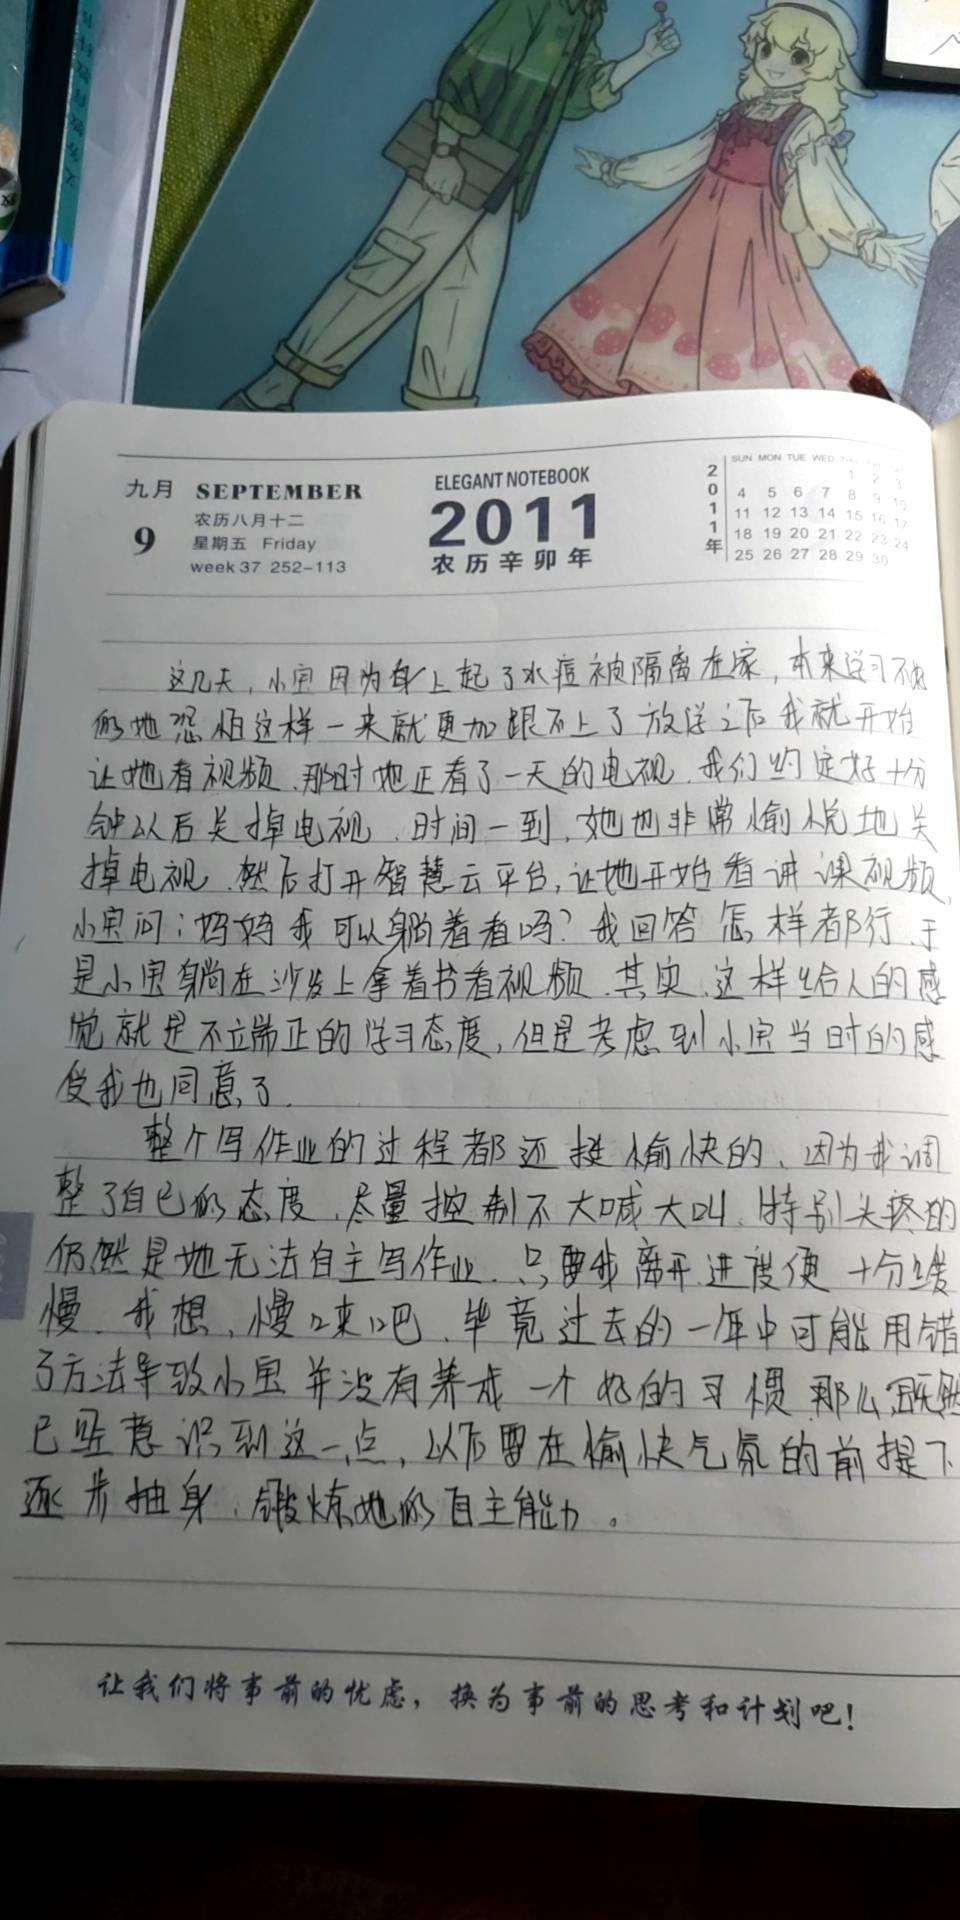 九月 SEPTEMBER
9
农历八月十二
星期五 Friday
week 37 252-113
ELEGANT NOTEBOOK
2011
农历辛卯年
2011年
SUN MON TUE WED
1 2 3
4 5 6 7 8 9 10
11 12 13 14 15 16 17
18 19 20 21 22 23 24
25 26 27 28 29 30
这几天,小宝因为身上起了水痘被隔离在家,本来学习不好
的她恐怕这样一来就更加跟不上了放学之后我就开始
让她看视频、那时她正看了一天的电视、我们约定好十分
钟以后关掉电视、时间一到、她也非常愉悦地关
掉电视、然后打开智慧云平台,让她开始看讲课视频,
小宝问:妈妈我可以躺着看吗?我回答怎样都行、于
是小宝躺在沙发上拿着书看视频、其实、这样给人的感
觉就是不立端正的学习态度,但是考虑到小宝当时的感
受我也同意了、
整个写作业的过程都还挺愉快的、因为我调
整了自已的态度、尽量控制不大喊大叫、特别头疼的
仍然是她无法自主写作业、只要我离开进度便十分缓
慢、我想、慢慢来吧、毕竟过去的一年中可能用错
了方法导致小宝并没有养成一个好的习惯那么既然
已经意识到这一点,以后要在愉快气氛的前提下
逐步抽身、锻炼她的自主能力。
让我们将事前的忧虑,换为事前的思考和计划吧!